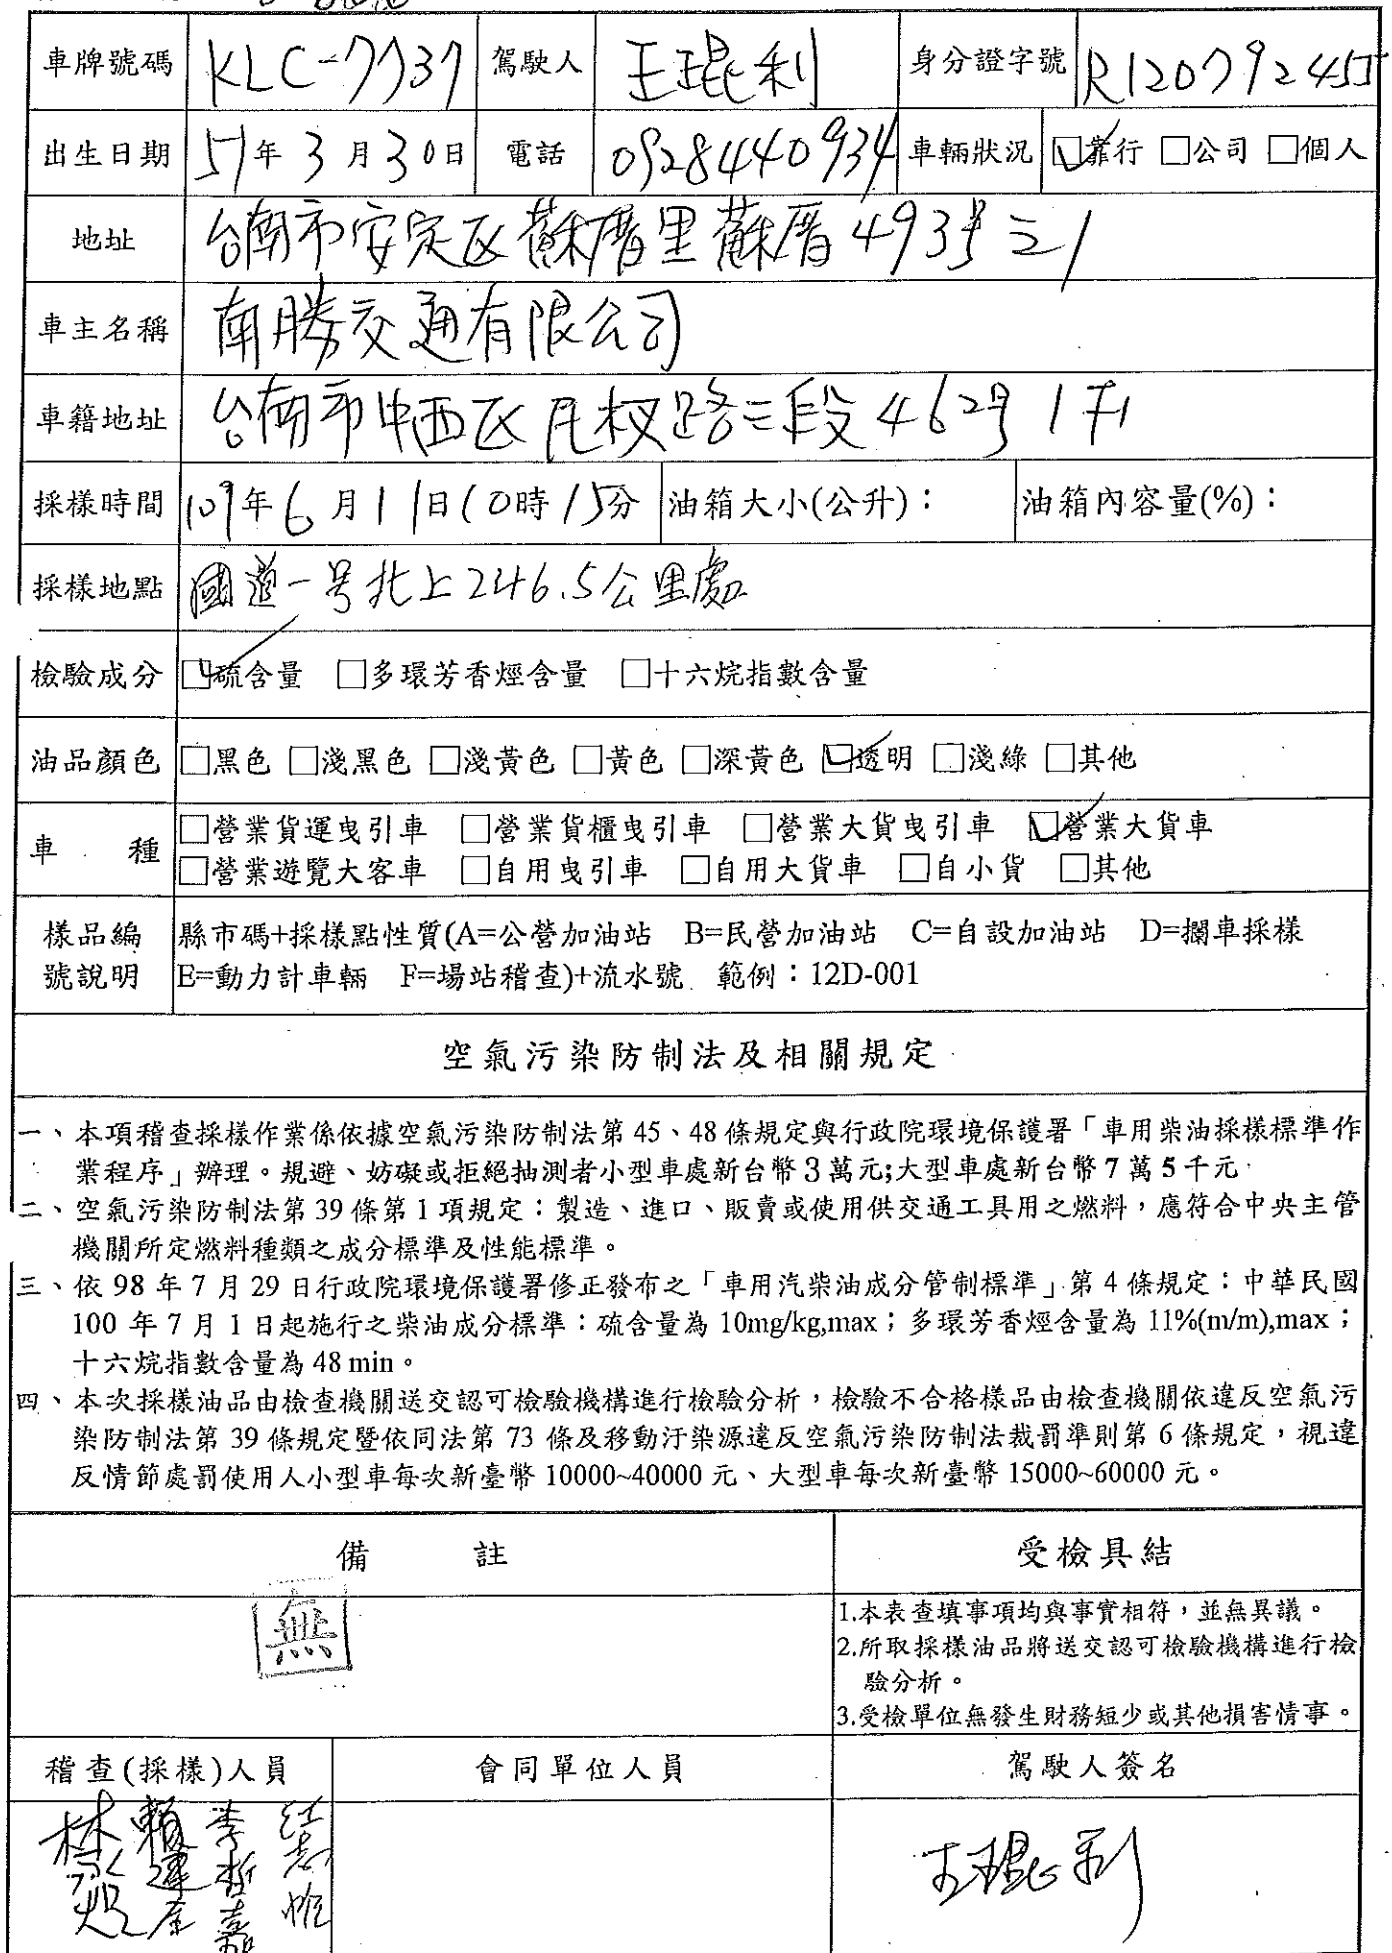 車牌號碼 KLC-7737 駕駛人 王琨利 身分證字號 R120792455
出生日期 51年3月30日 電話 0928440934 車輛狀況 ☑靠行 □公司 □個人
地址 台南市安定区蘇厝里蘇厝493号之1
車主名稱 南勝交通有限公司
車籍地址 台南市中西区民权路三段462号1F
採樣時間 109年6月11日10時15分 油箱大小(公升): 油箱內容量(%):
採樣地點 國道一号北上246.5公里處
檢驗成分 ☑硫含量 □多環芳香烴含量 □十六烷指數含量
油品顏色 □黑色 □淺黑色 □淺黃色 □黃色 □深黃色 ☑透明 □淺綠 □其他
車種 □營業貨運曳引車 □營業貨櫃曳引車 □營業大貨曳引車 ☑營業大貨車
□營業遊覽大客車 □自用曳引車 □自用大貨車 □自小貨 □其他
樣品編 縣市碼+採樣點性質(A=公營加油站 B=民營加油站 C=自設加油站 D=攔車採樣
號說明 E=動力計車輛 F=場站稽查)+流水號 範例:12D-001
空氣污染防制法及相關規定
一、本項稽查採樣作業係依據空氣污染防制法第45、48條規定與行政院環境保護署「車用柴油採樣標準作
業程序」辦理。規避、妨礙或拒絕抽測者小型車處新台幣3萬元;大型車處新台幣7萬5千元
二、空氣污染防制法第39條第1項規定:製造、進口、販賣或使用供交通工具用之燃料,應符合中央主管
機關所定燃料種類之成分標準及性能標準。
三、依98年7月29日行政院環境保護署修正發布之「車用汽柴油成分管制標準」第4條規定:中華民國
100年7月1日起施行之柴油成分標準:硫含量為10mg/kg,max;多環芳香烴含量為11%(m/m),max;
十六烷指數含量為48 min。
四、本次採樣油品由檢查機關送交認可檢驗機構進行檢驗分析,檢驗不合格樣品由檢查機關依違反空氣污
染防制法第39條規定暨依同法第73條及移動汙染源違反空氣污染防制法裁罰準則第6條規定,視違
反情節處罰使用人小型車每次新臺幣10000~40000元、大型車每次新臺幣15000~60000元。
備註 受檢具結
無
1.本表查填事項均與事實相符,並無異議。
2.所取採樣油品將送交認可檢驗機構進行檢
驗分析。
3.受檢單位無發生財務短少或其他損害情事。
稽查(採樣)人員 會同單位人員 駕駛人簽名
王琨利